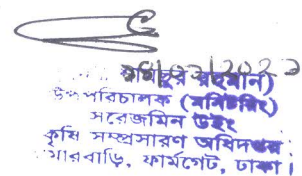 রহমান)
উপপরিচালক (মনিটরিং)
সরেজমিন উইং
কৃষি সম্প্রসারণ অধিদপ্তর
খামারবাড়ি, ফার্মগেট, ঢাকা।